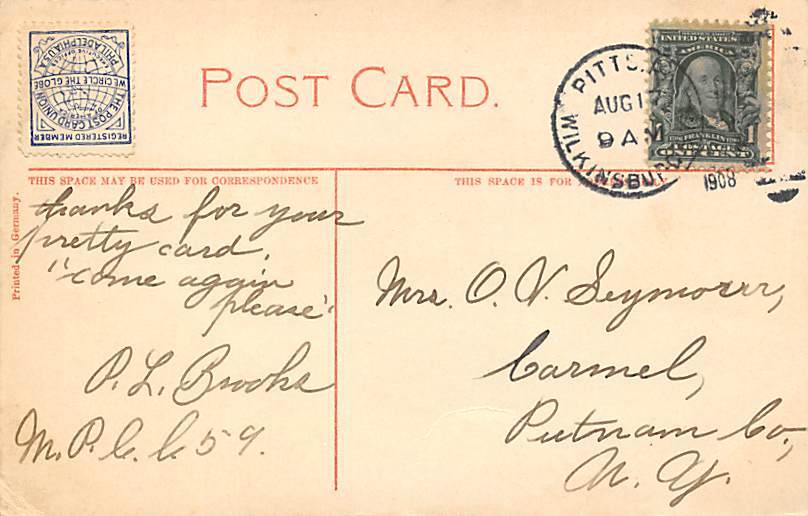 POST CARD.
REGISTERED MEMBER
THE POST CARD UNION
OF AMERICA
WE CIRCLE THE GLOBE
PHILADELPHIA U.S.A.
PITTS
AUG 1
9 AM
WILKINSBURG
1908
SERIES 1902
UNITED STATES OF
AMERICA
FRANKLIN
1 POSTAGE 1
ONE CENT
THIS SPACE MAY BE USED FOR CORRESPONDENCE
THIS SPACE IS FOR
Printed in Germany.
thanks for your
pretty card,
"come again
please"
P. L. Brooks
M. P. C. C. 59.
Mrs. O. V. Seymour,
Carmel,
Putnam Co,
N. Y.